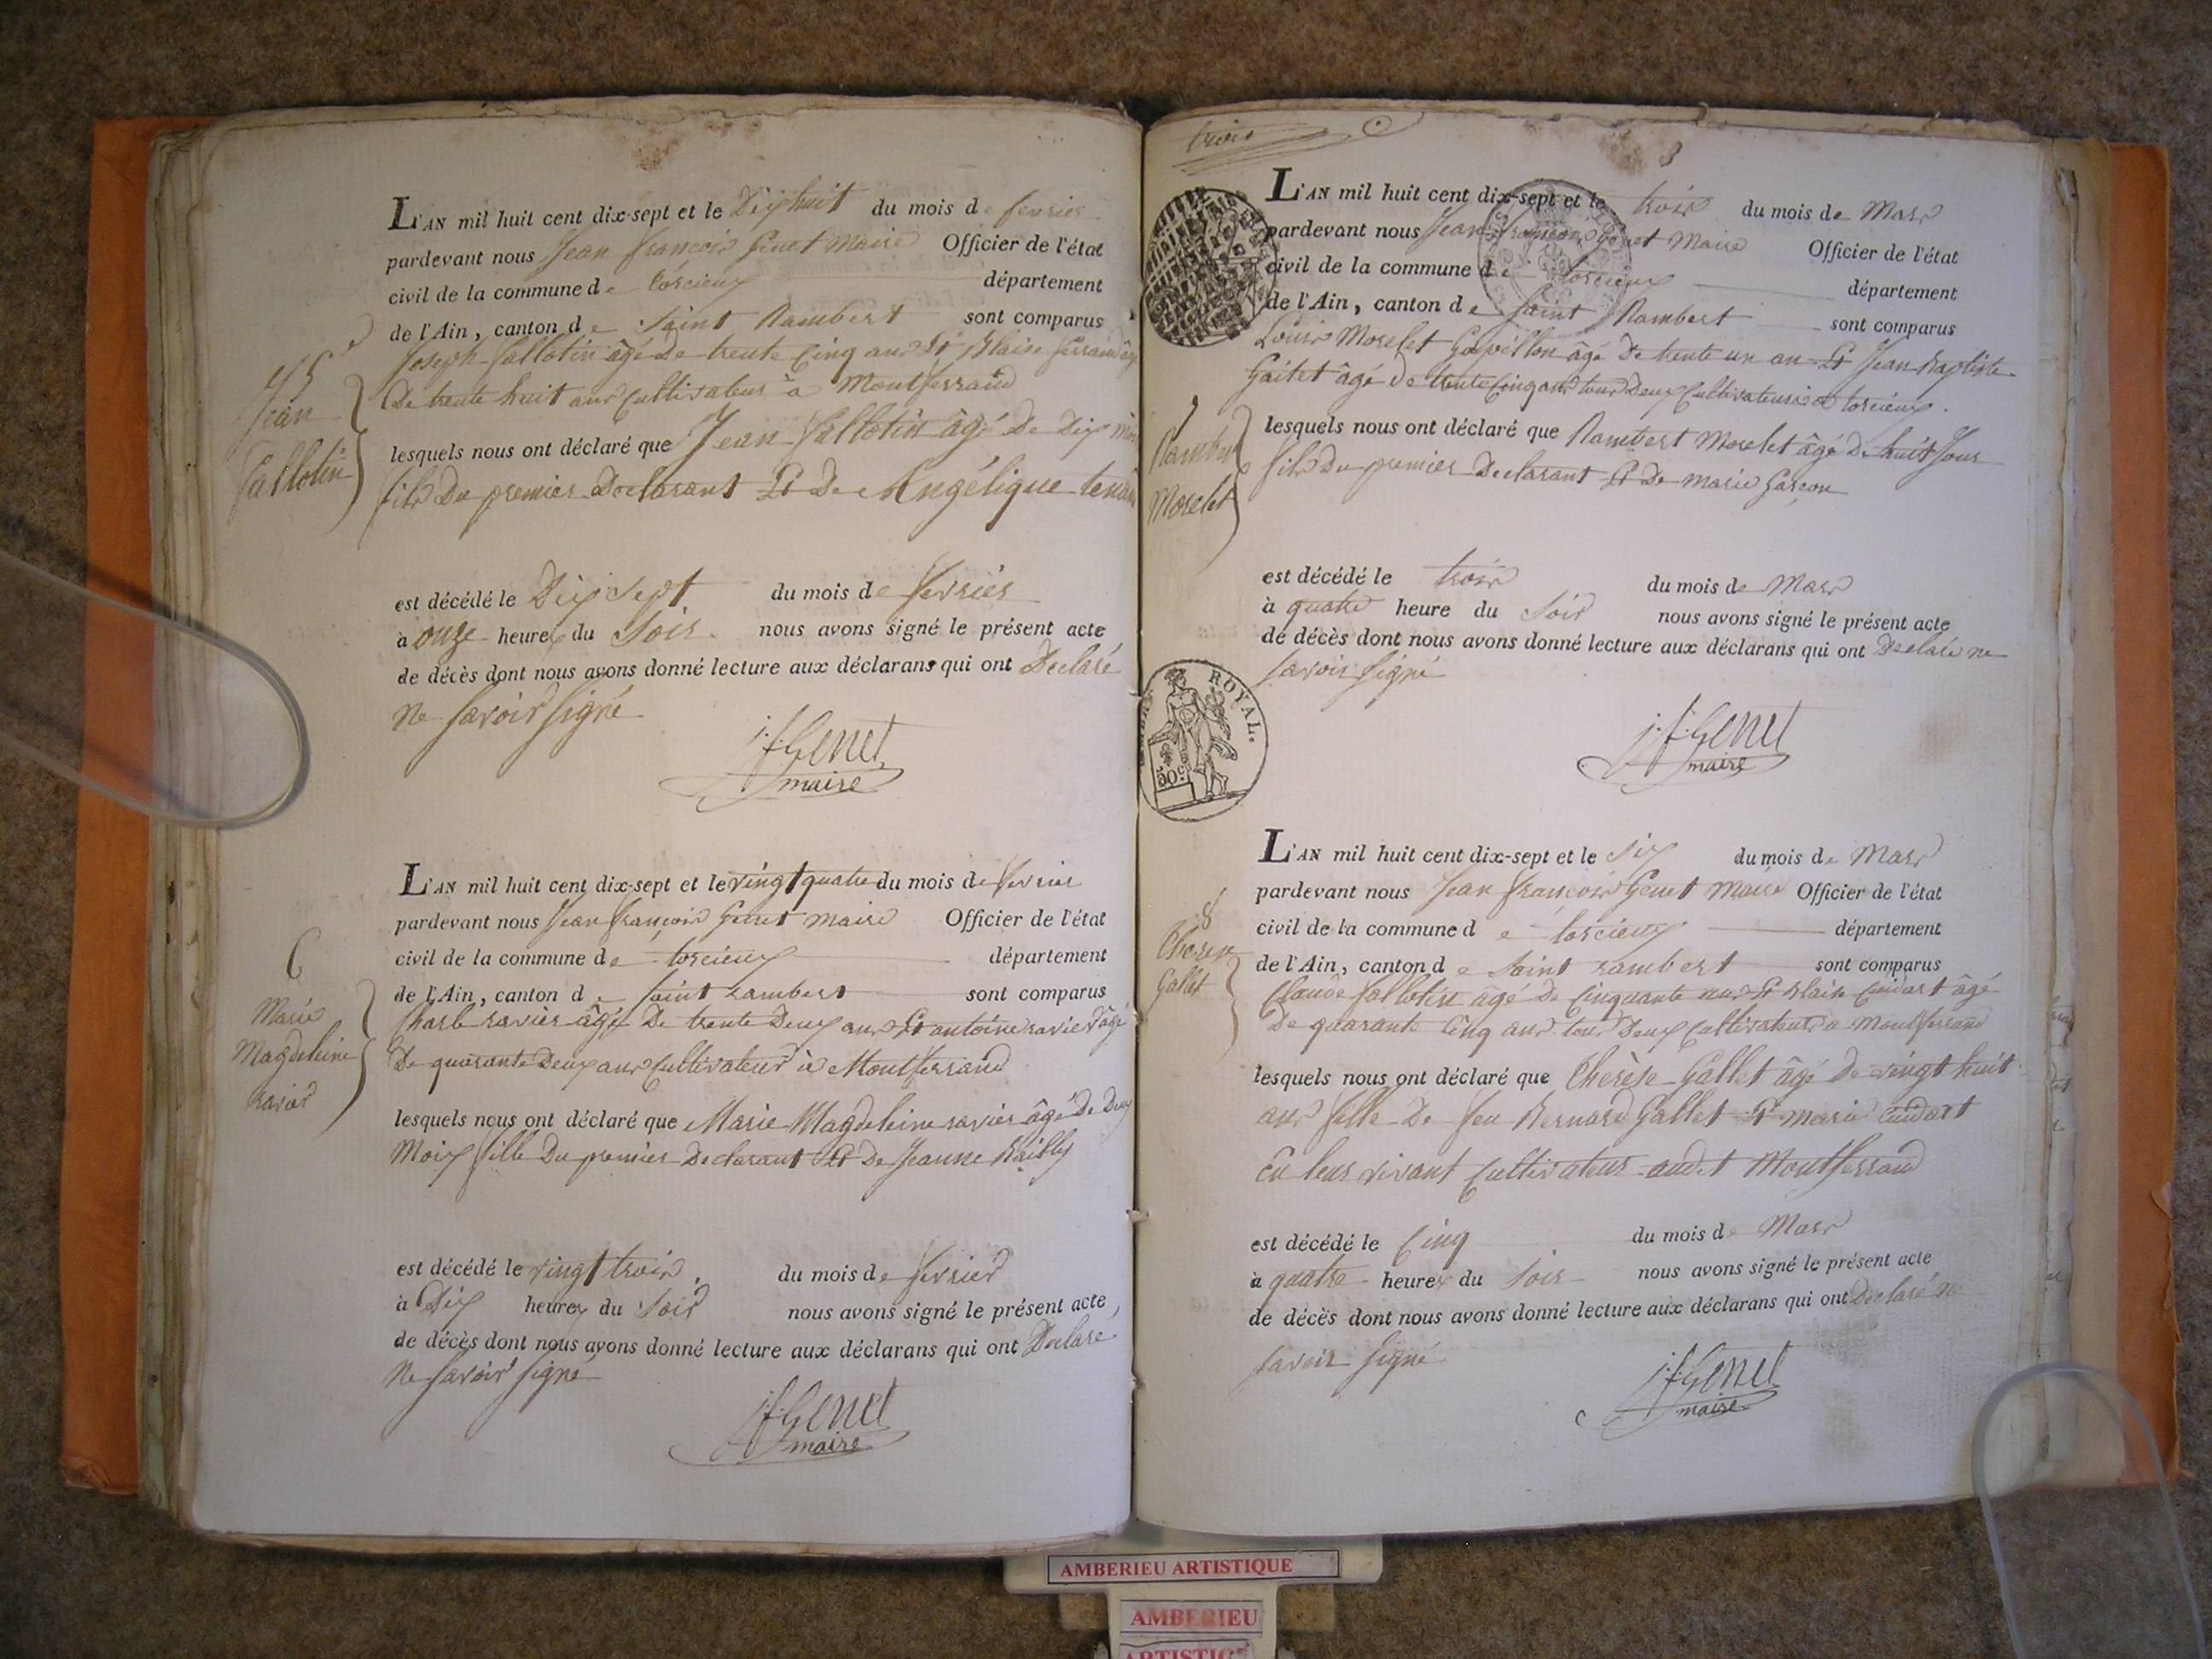 L'AN mil huit cent dix-sept et le Dix huit du mois de fevrier
pardevant nous Jean francois Genet Maire Officier de l'état
civil de la commune de torcieux département
de l'Ain, canton de Saint Rambert sont comparus
Joseph Sallotin âgé de trente Cinq ans Et Blaise ferrand âgé
De trente huit ans Cultivateur à Montferrand
5
Jean
Sallotin
lesquels nous ont déclaré que Jean Sallotin âgé De Dix mois
fils Du premier Declarant Et De Angélique
est décédé le Dix Sept du mois de fevrier
à onze heures du Soir nous avons signé le présent acte
de décès dont nous avons donné lecture aux déclarans qui ont Declaré
ne Savoir Signé
j. f. Genet
maire
L'AN mil huit cent dix-sept et le vingt quatre du mois de fevrier
pardevant nous Jean françois Genet maire Officier de l'état
civil de la commune de torcieux département
de l'Ain, canton de Saint rambert sont comparus
Charle ravier âgé De trente Deux ans Et antoine ravier âgé
De quarante Deux ans Cultivateur à Montferrand
6
Marie
Magdeleine
ravier
lesquels nous ont déclaré que Marie Magdeleine ravier âgé De Deux
Moix fille Du premier Declarant Et De Jeanne Bailly
est décédé le vingt trois du mois de fevrier
à Dix heures du Soir nous avons signé le présent acte
de décès dont nous avons donné lecture aux déclarans qui ont Declaré
Ne Savoir Signé
j. f. Genet
maire
trois
3
L'AN mil huit cent dix-sept et le trois du mois de Mars
pardevant nous Jean françois Genet Maire Officier de l'état
civil de la commune de torcieux département
de l'Ain, canton de Saint Rambert sont comparus
Louis Morelet Gapillon âgé De trente un an Et Jean Baptiste
Gaitet âgé De trente Cinq ans tous Deux Cultivateurs a torcieux.
7
Rambert
Morelet
lesquels nous ont déclaré que Rambert Morelet âgé De huit Jour
fils Du premier Declarant Et De marie Garçon
est décédé le trois du mois de Mars
à quatre heure du Soir nous avons signé le présent acte
de décès dont nous avons donné lecture aux déclarans qui ont Declaré ne
Savoir Signé
ROYAL.
50 c
j. f. Genet
maire
L'AN mil huit cent dix-sept et le Six du mois de Mars
pardevant nous Jean françois Genet Maire Officier de l'état
civil de la commune de torcieux département
de l'Ain, canton de Saint rambert sont comparus
Claude Sallotin âgé De Cinquante ans Et Blaise Cuidart âgé
De quarante Cinq ans tous Deux Cultivateurs a Montferrand
8
Therese
Gallet
lesquels nous ont déclaré que Therèse Gallet âgé De vingt huit
ans fille De feu Bernard Gallet Et Marie Cuidart
En leur vivant Cultivateur audit Montferrand
est décédé le Cinq du mois de Mars
à quatre heures du Soir nous avons signé le présent acte
de décès dont nous avons donné lecture aux déclarans qui ont Declaré ne
Savoir Signé
j. f. Genet
maire
AMBERIEU ARTISTIQUE
AMBERIEU